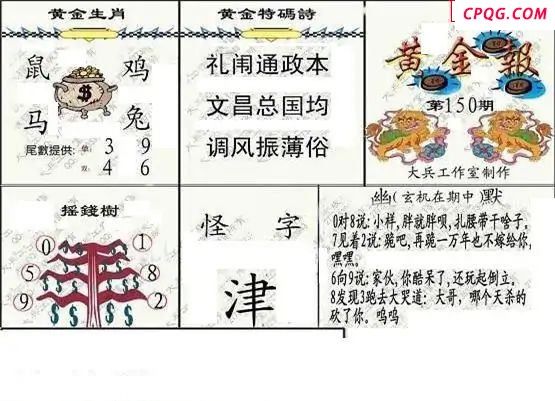 CPQG.COM
黄金生肖
鼠 鸡
$
马 兔
尾數提供: 单: 3 9
双: 4 6
黄金特碼詩
礼闹通政本
文昌总国均
调风振薄俗
黄金報
第150期
大兵工作室制作
摇錢樹
0 1
5 8
9 2
$ $ $ $
怪 字
津
幽(玄机在期中)默
0对8说: 小样, 胖就胖呗, 扎腰带干啥子,
7见着2说: 跪吧, 再跪一万年也不嫁给你,
嘿嘿。
6向9说: 家伙, 你酷呆了, 还玩起倒立。
8发现3跑去大哭道: 大哥, 哪个天杀的
砍了你。呜呜